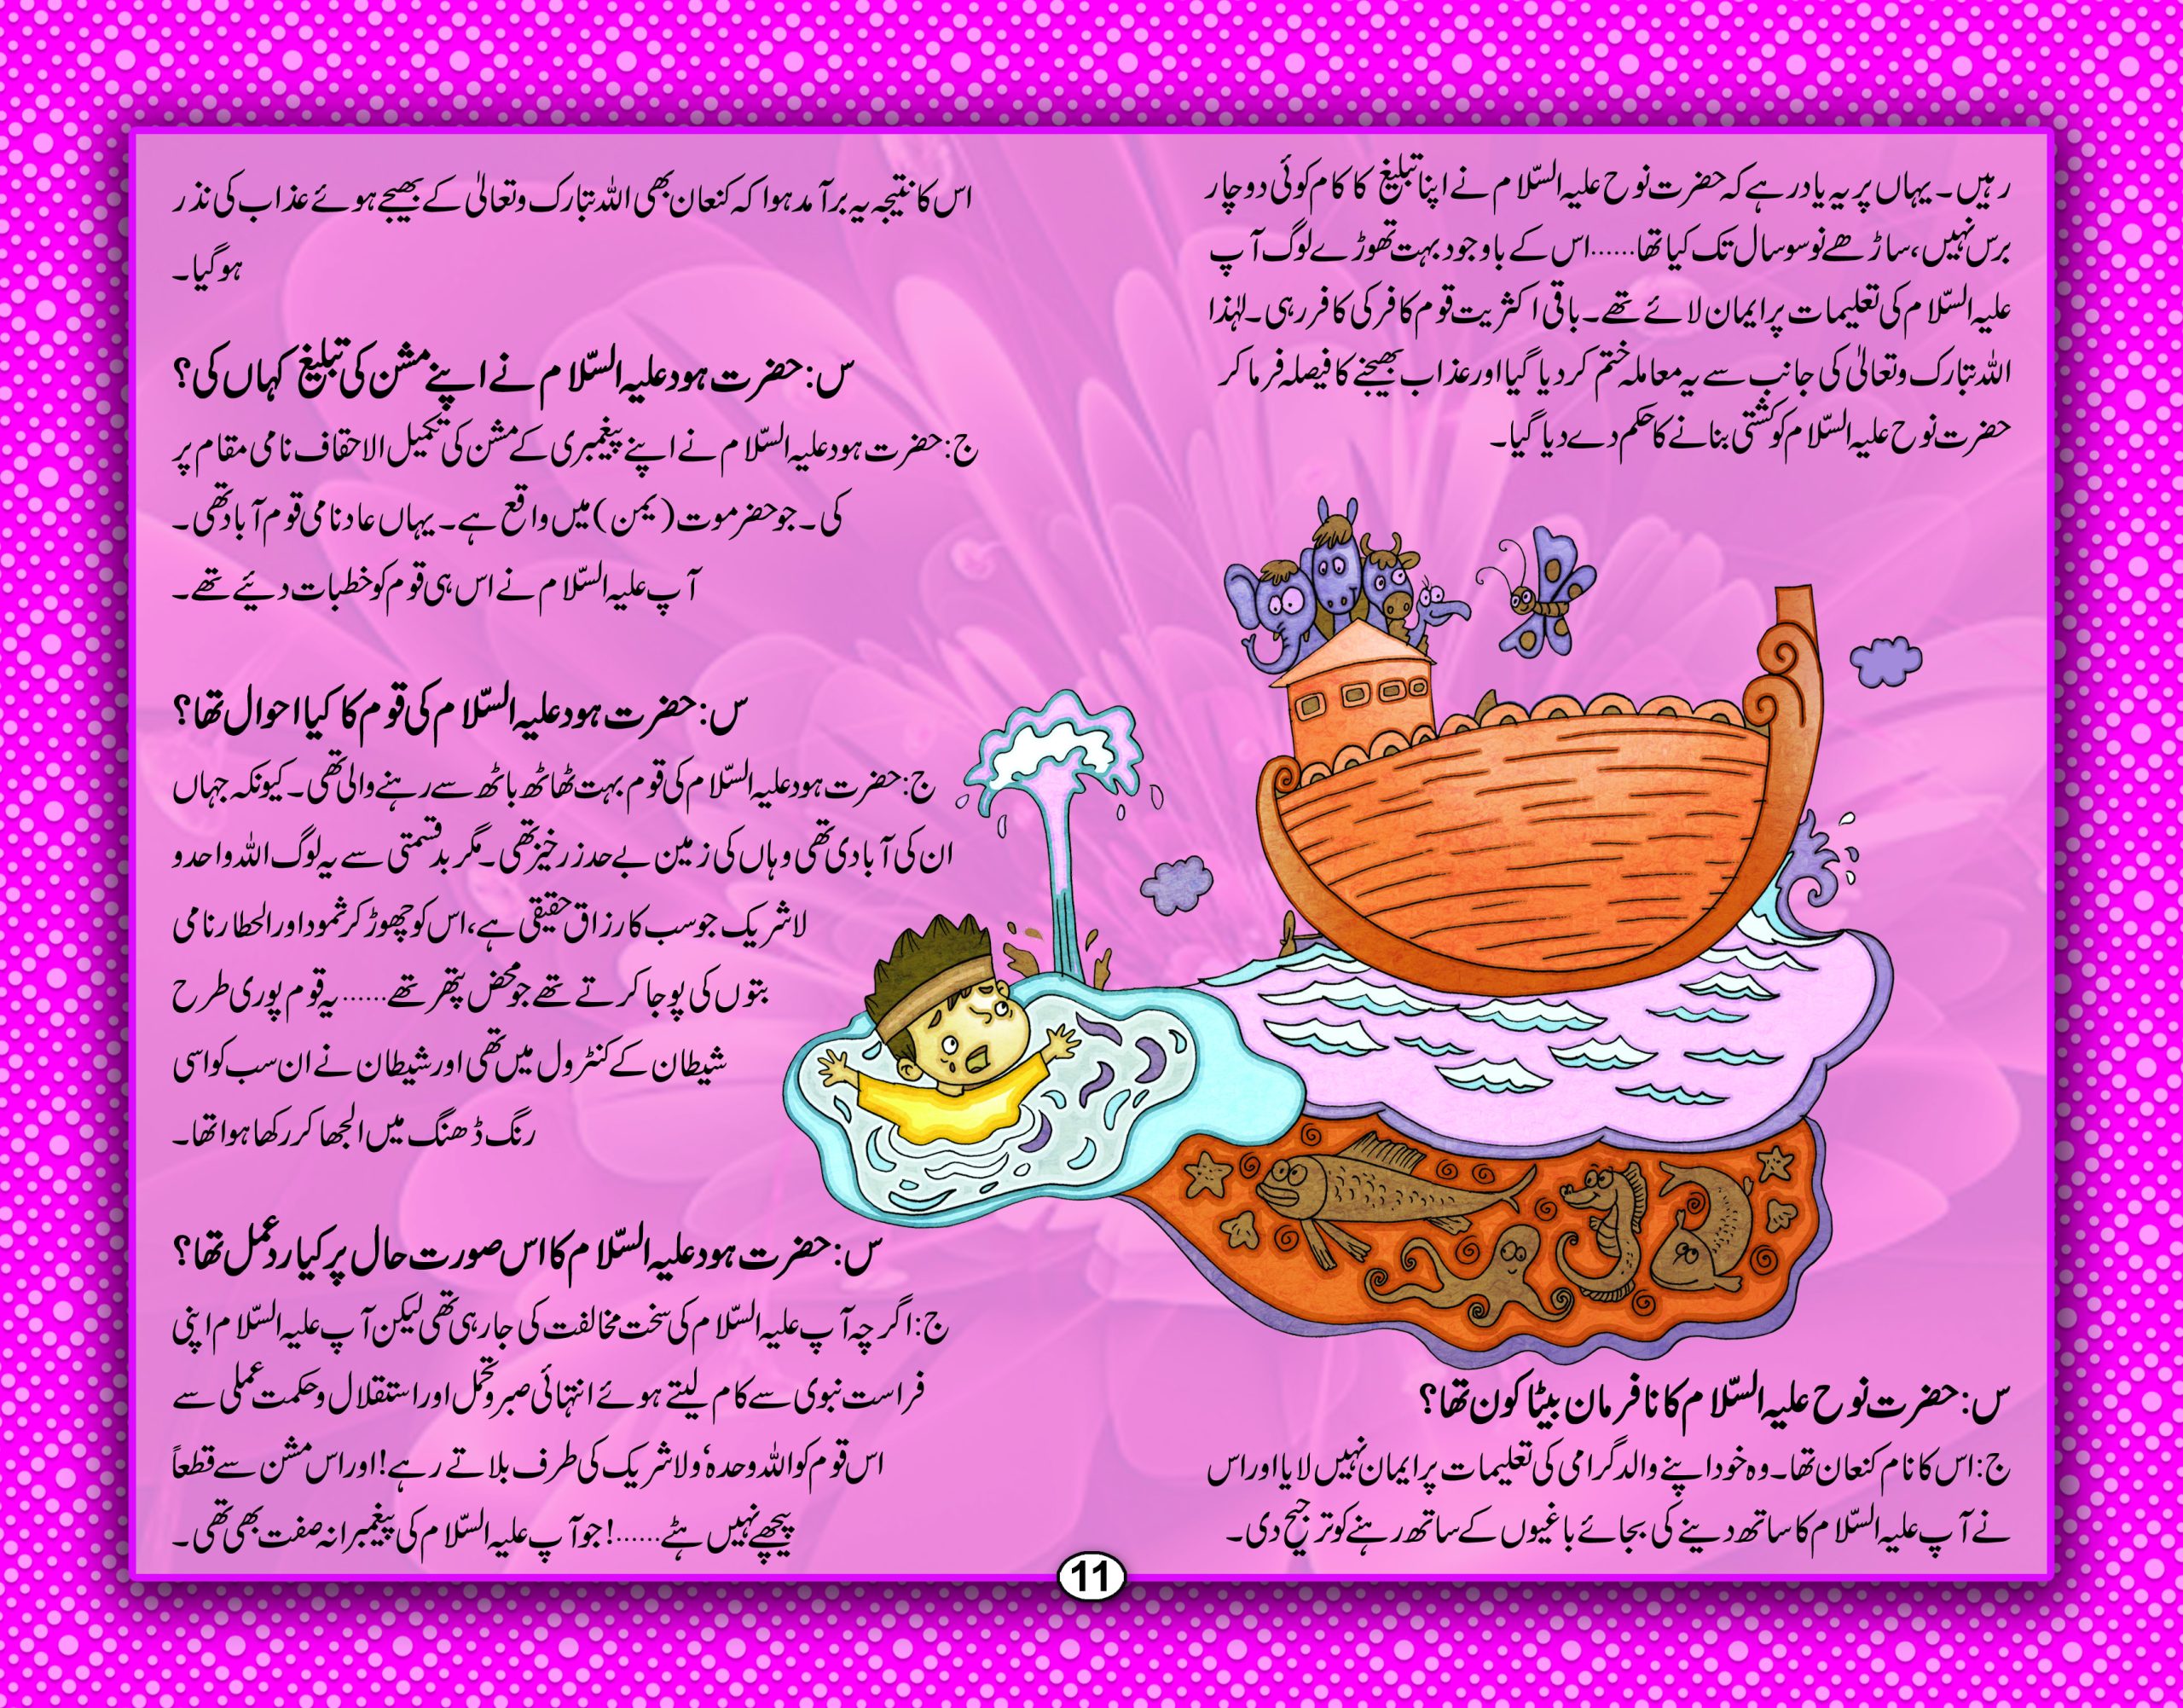 رہیں۔ یہاں پر یہ یاد رہے کہ حضرت نوح علیہ السّلام نے اپنا تبلیغ کا کام کوئی دو چار
برس نہیں، ساڑھے نو سو سال تک کیا تھا......اس کے باوجود بہت تھوڑے لوگ آپ
علیہ السّلام کی تعلیمات پر ایمان لائے تھے۔ باقی اکثریت قوم کافر کی کافر رہی۔ لہٰذا
اللہ تبارک وتعالیٰ کی جانب سے یہ معاملہ ختم کر دیا گیا اور عذاب بھیجنے کا فیصلہ فرما کر
حضرت نوح علیہ السّلام کو کشتی بنانے کا حکم دے دیا گیا۔
س: حضرت نوح علیہ السّلام کا نافرمان بیٹا کون تھا؟
ج: اس کا نام کنعان تھا۔ وہ خود اپنے والد گرامی کی تعلیمات پر ایمان نہیں لایا اور اس
نے آپ علیہ السّلام کا ساتھ دینے کی بجائے باغیوں کے ساتھ رہنے کو ترجیح دی۔
اس کا نتیجہ یہ برآمد ہوا کہ کنعان بھی اللہ تبارک وتعالیٰ کے بھیجے ہوئے عذاب کی نذر
ہو گیا۔
س: حضرت ہود علیہ السّلام نے اپنے مشن کی تبلیغ کہاں کی؟
ج: حضرت ہود علیہ السّلام نے اپنے پیغمبری کے مشن کی تکمیل الاحقاف نامی مقام پر
کی۔ جو حضر موت (یمن) میں واقع ہے۔ یہاں عاد نامی قوم آباد تھی۔
آپ علیہ السّلام نے اس ہی قوم کو خطبات دیئے تھے۔
س: حضرت ہود علیہ السّلام کی قوم کا کیا احوال تھا؟
ج: حضرت ہود علیہ السّلام کی قوم بہت ٹھاٹھ باٹھ سے رہنے والی تھی۔ کیونکہ جہاں
ان کی آبادی تھی وہاں کی زمین بے حد زرخیز تھی۔ مگر بدقسمتی سے یہ لوگ اللہ واحد و
لاشریک جو سب کا رزاق حقیقی ہے، اس کو چھوڑ کر ثمود اور الحطار نامی
بتوں کی پوجا کرتے تھے جو محض پتھر تھے......یہ قوم پوری طرح
شیطان کے کنٹرول میں تھی اور شیطان نے ان سب کو اسی
رنگ ڈھنگ میں الجھا کر رکھا ہوا تھا۔
س: حضرت ہود علیہ السّلام کا اس صورت حال پر کیا ردعمل تھا؟
ج: اگرچہ آپ علیہ السّلام کی سخت مخالفت کی جا رہی تھی لیکن آپ علیہ السّلام اپنی
فراست نبوی سے کام لیتے ہوئے انتہائی صبر و تحمل اور استقلال و حکمت عملی سے
اس قوم کو اللہ وحدہٗ ولاشریک کی طرف بلاتے رہے! اور اس مشن سے قطعاً
پیچھے نہیں ہٹے......! جو آپ علیہ السّلام کی پیغمبرانہ صفت بھی تھی۔
11